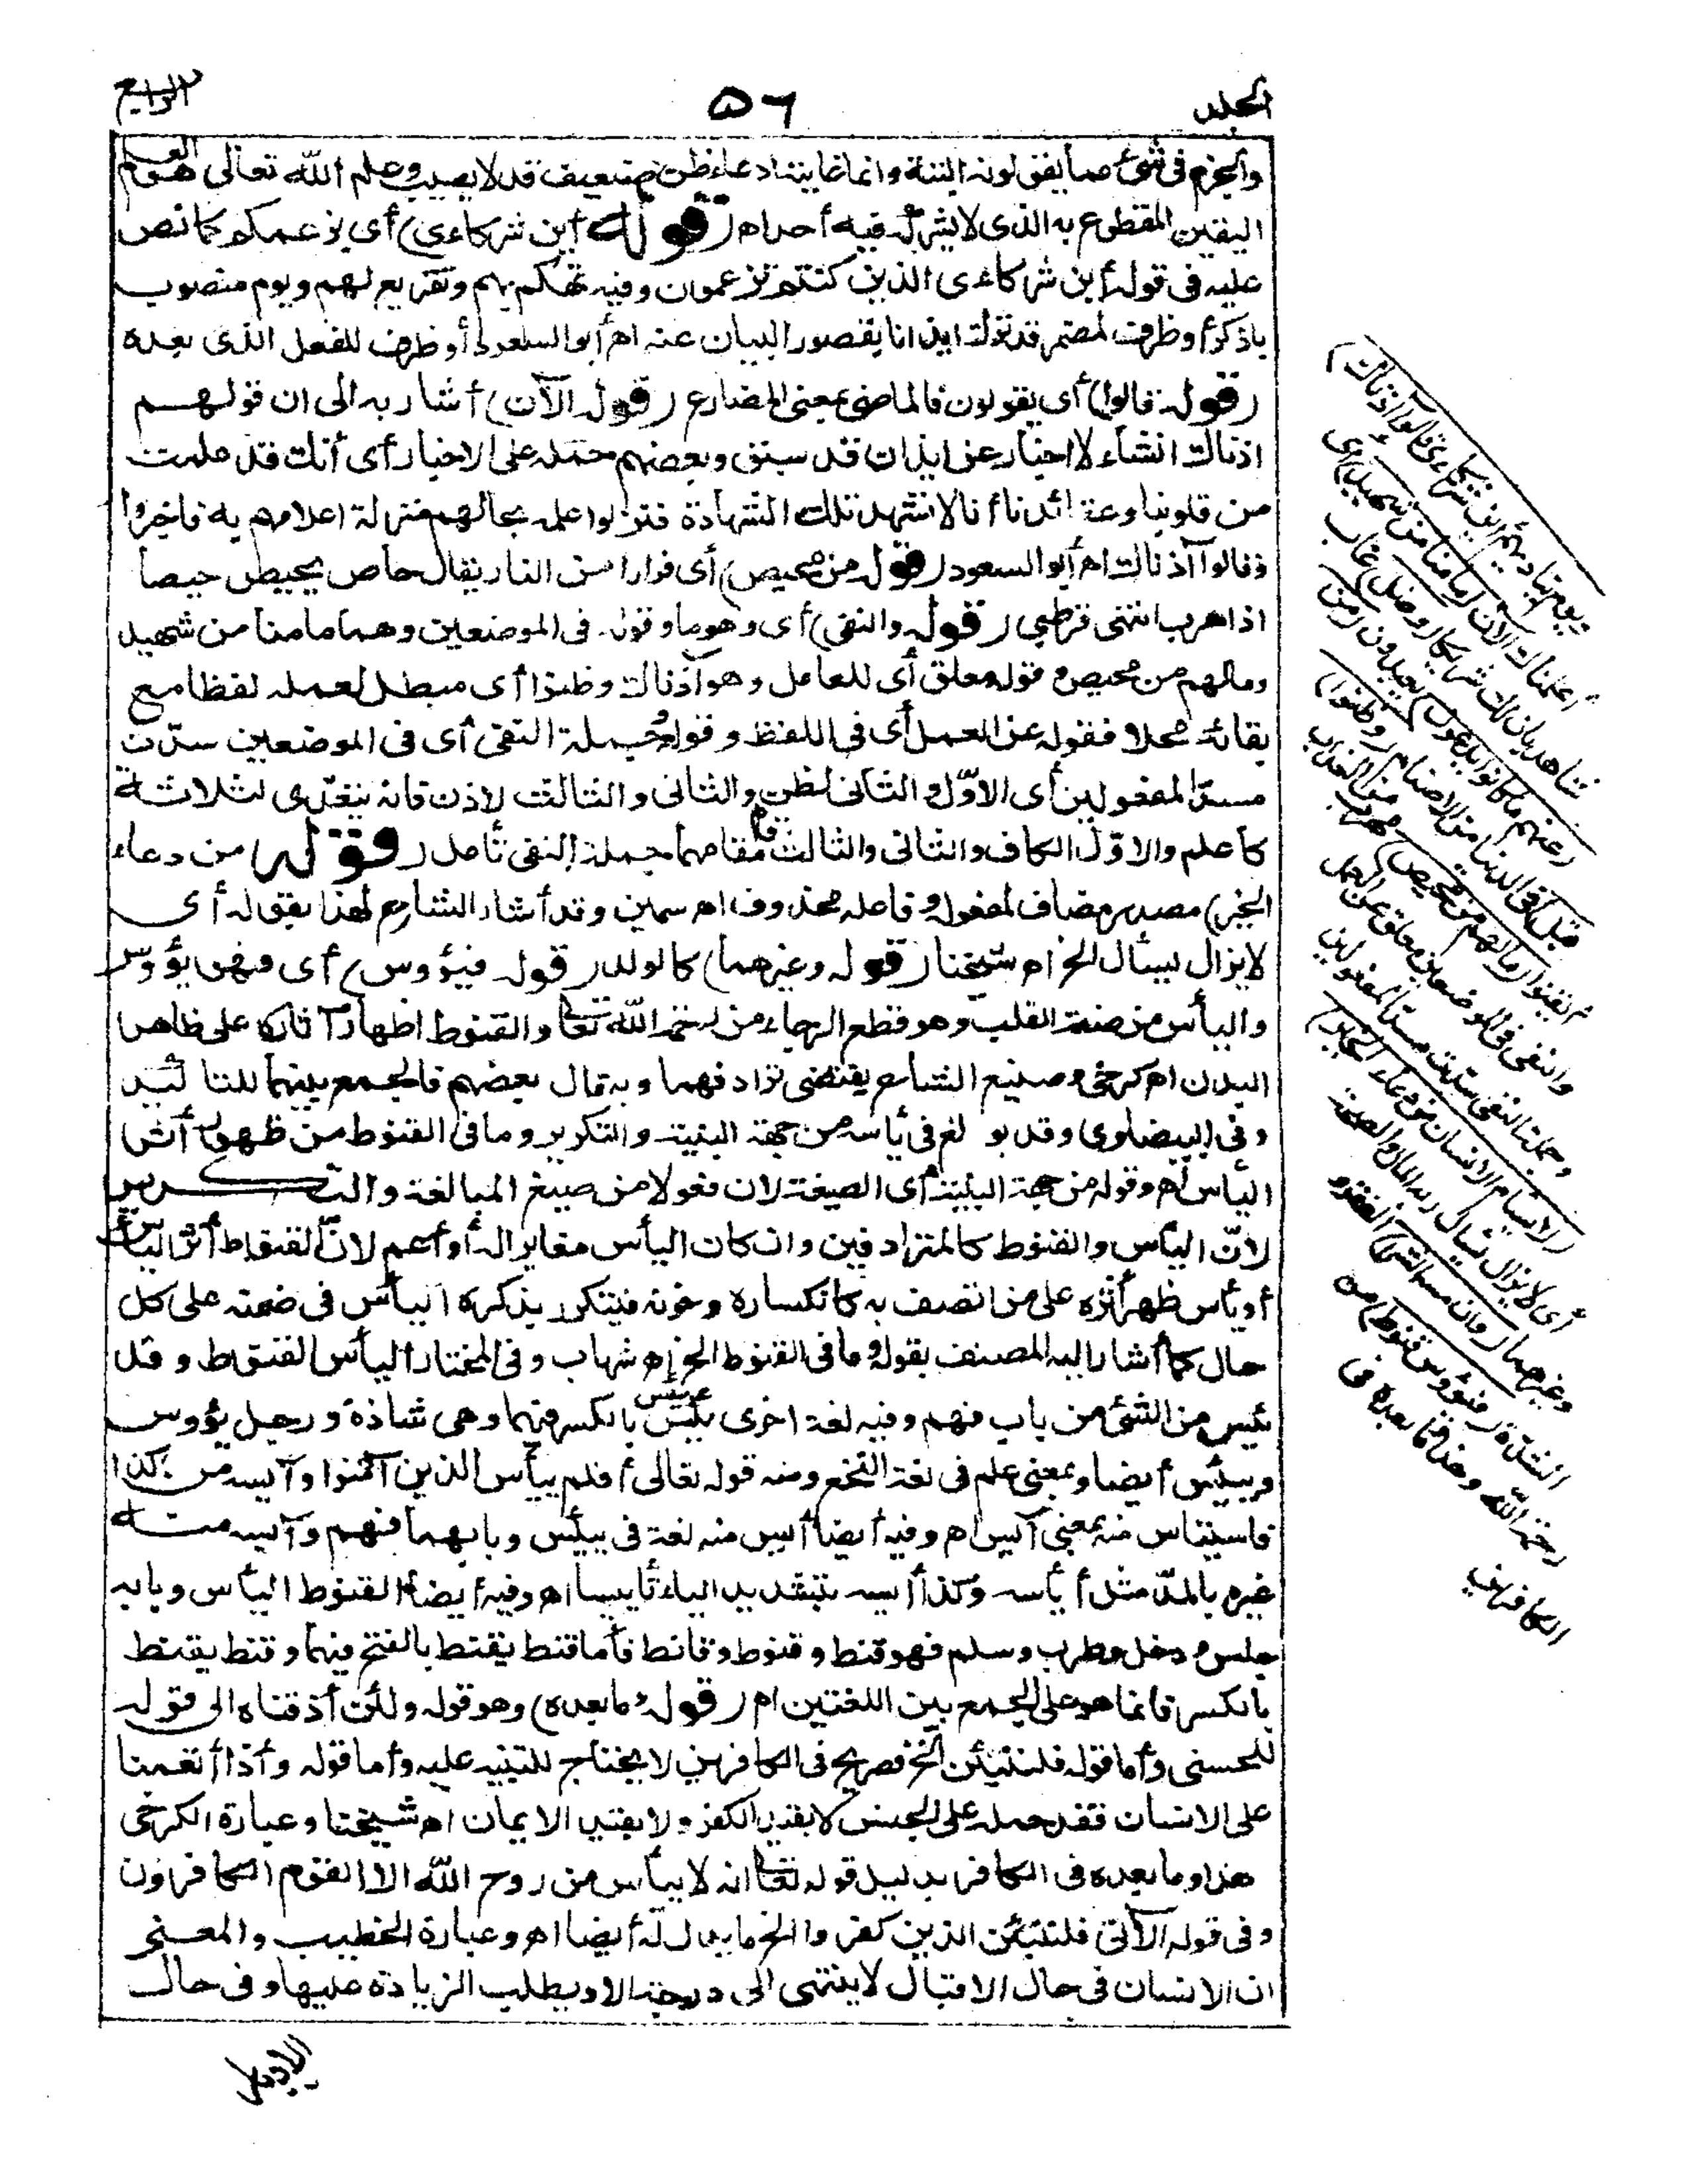 المجلد
٥٦
الرابع
والجزم فى شئ مما يقولونه البتة وانما غايتنا ادعاء ظن ضعيف قد لا يصيب وعلم الله تعالى هو العلم
اليقين المقطوع به الذى لا يشركه فيه أحد اه (قوله أين شركاءى) أى بزعمكم كما نص
عليه فى قوله أين شركاءى الذين كنتم تزعمون وفيه تهكم بهم وتقريع لهم ويوم منصوب
باذكر أو ظرف لمضمر قد ترك ايذانا بقصور البيان عنه اه أبو السعود أو ظرف للفعل الذى بعده
(قوله قالوا) أى يقولون فالماضى بمعنى المضارع (قوله الآن) أشار به الى ان قولهم
اذناك انشاء لا اخبار عن ايذان قد سبق وبعضهم حمله على الاخبار أى أنك قد علمت
من قلوبنا وعقائدنا أنا لا نشهد تلك الشهادة فنزلوا علمه بحالهم منزلة اعلامهم به فاخبروا
وقالوا آذناك اه أبو السعود (قوله من محيص) أى فرارا من النار يقال حاص يحيص حيصا
اذا هرب انتهى قرطبى (قوله والنفى) أى وهو ما وقوله فى الموضعين وهما ما منا من شهيد
وما لهم من محيص وقوله معلق أى للعامل وهو آذناك وظنوا أى مبطل لعمله لفظا مع
بقائه محلا فقوله عن العمل أى فى اللفظ وقوله وجملة النفى أى فى الموضعين سدت
مسد المفعولين أى الاوّل والثانى لظن والثانى والثالث لاذن فانه يتعدى لثلاثة
كأعلم والاوّل الكاف والثانى والثالث قام مقامهما جملة النفى تأمل (قوله من دعاء
الخير) مصدر مضاف لمفعوله وفاعله محذوف اه سمين وقد أشار الشارح لهذا بقوله أى
لا يزال يسأل الخ اه شيخنا (قوله وغيرهما) كالولد (قوله فيؤوس) أى فهو يؤوس
واليأس من صفة القلب وهو قطع الرجاء من رحمة الله تعا والقنوط اظهار آثاره على ظاهر
البدن اه كرخى وصنيع الشارح يقتضى ترادفهما وبه قال بعضهم فالجمع بينهما للتأكيد
وفى البيضاوى وقد بولغ فى يأسه من جهة البنية والتكرير وما فى القنوط من ظهور أثر
اليأس اه وقوله من جهة البنية أى الصيغة لان فعولا من صيغ المبالغة والتكرير
لانّ اليأس والقنوط كالمترادفين وان كان اليأس مغايرا له أو أعم لانّ القنوط أثر اليأس
أو يأس ظهر أثره على من اتصف به كانكساره وحزنه فيتكرر بذكره اليأس فى ضمنه على كل
حال كما أشار اليه المصنف بقوله وما فى القنوط الخ اه شهاب وفى المختار اليأس القنوط وقد
يئس من الشئ من باب فهم وفيه لغة اخرى يئس ييئس بالكسر فيهما وهى شاذة ورجل يؤوس
ويئس أيضا وبمعنى علم فى لغة النخع ومنه قوله تعالى أفلم ييأس الذين آمنوا وآيسه من كذا
فاستيأس منه بمعنى آيس اه وفيه أيضا أيس منه لغة فى ييئس وبابهما فهم وآيسه منه
غيره بالمدّ مثل أيأسه وكذا أيسه بتشديد الياء تأييسا اه وفيه أيضا القنوط اليأس وبابه
جلس ودخل وطرب وسلم فهو قنط وقنوط وقانط فأما قنط يقنط بالفتح فيهما وقنط يقنط
بالكسر فانما هو على الجمع بين اللغتين اه (قوله وما بعده) وهو قوله ولئن أذقناه الى قوله
للحسنى وأما قوله فلننبئن الخ فصريح فى الكافرين لا يحتاج للتنبيه عليه وأما قوله واذا أنعمنا
على الانسان فقد حمله على الجنس لا بقيد الكفر ولا بقيد الايمان اه شيخنا وعبارة الكرخى
هذا وما بعده فى الكافر بدليل قوله تعا انه لا ييأس من روح الله الا القوم الكافرون
وفى قوله الآتى فلننبئن الذين كفروا الخ ما يدل له أيضا اه وعبارة الخطيب والمعنى
ان الانسان فى حال الاقبال لا ينتهى الى درجة الا ويطلب الزيادة عليها وفى حال
الادبار
ويوم يناديهم أين شركاءى قالوا آذناك)
أعلمناك الآن (ما منا من شهيد) أى
شاهد بان لك شريكا (وضل) غاب
(عنهم ما كانوا يدعون) يعبدون (من
قبل) فى الدنيا من الاصنام (وظنوا)
أيقنوا (ما لهم من محيص) مهرب من العذاب
والنفى فى الموضعين معلق عن العمل
وجملة النفى سدت مسد المفعولين
(لا يسأم الانسان من دعاء الخير)
أى لا يزال يسأل ربه المال والصحة
وغيرهما (وان مسه الشر) الفقر و
الشدة (فيؤوس قنوط) من
رحمة الله وهذا وما بعده فى
الكافرين